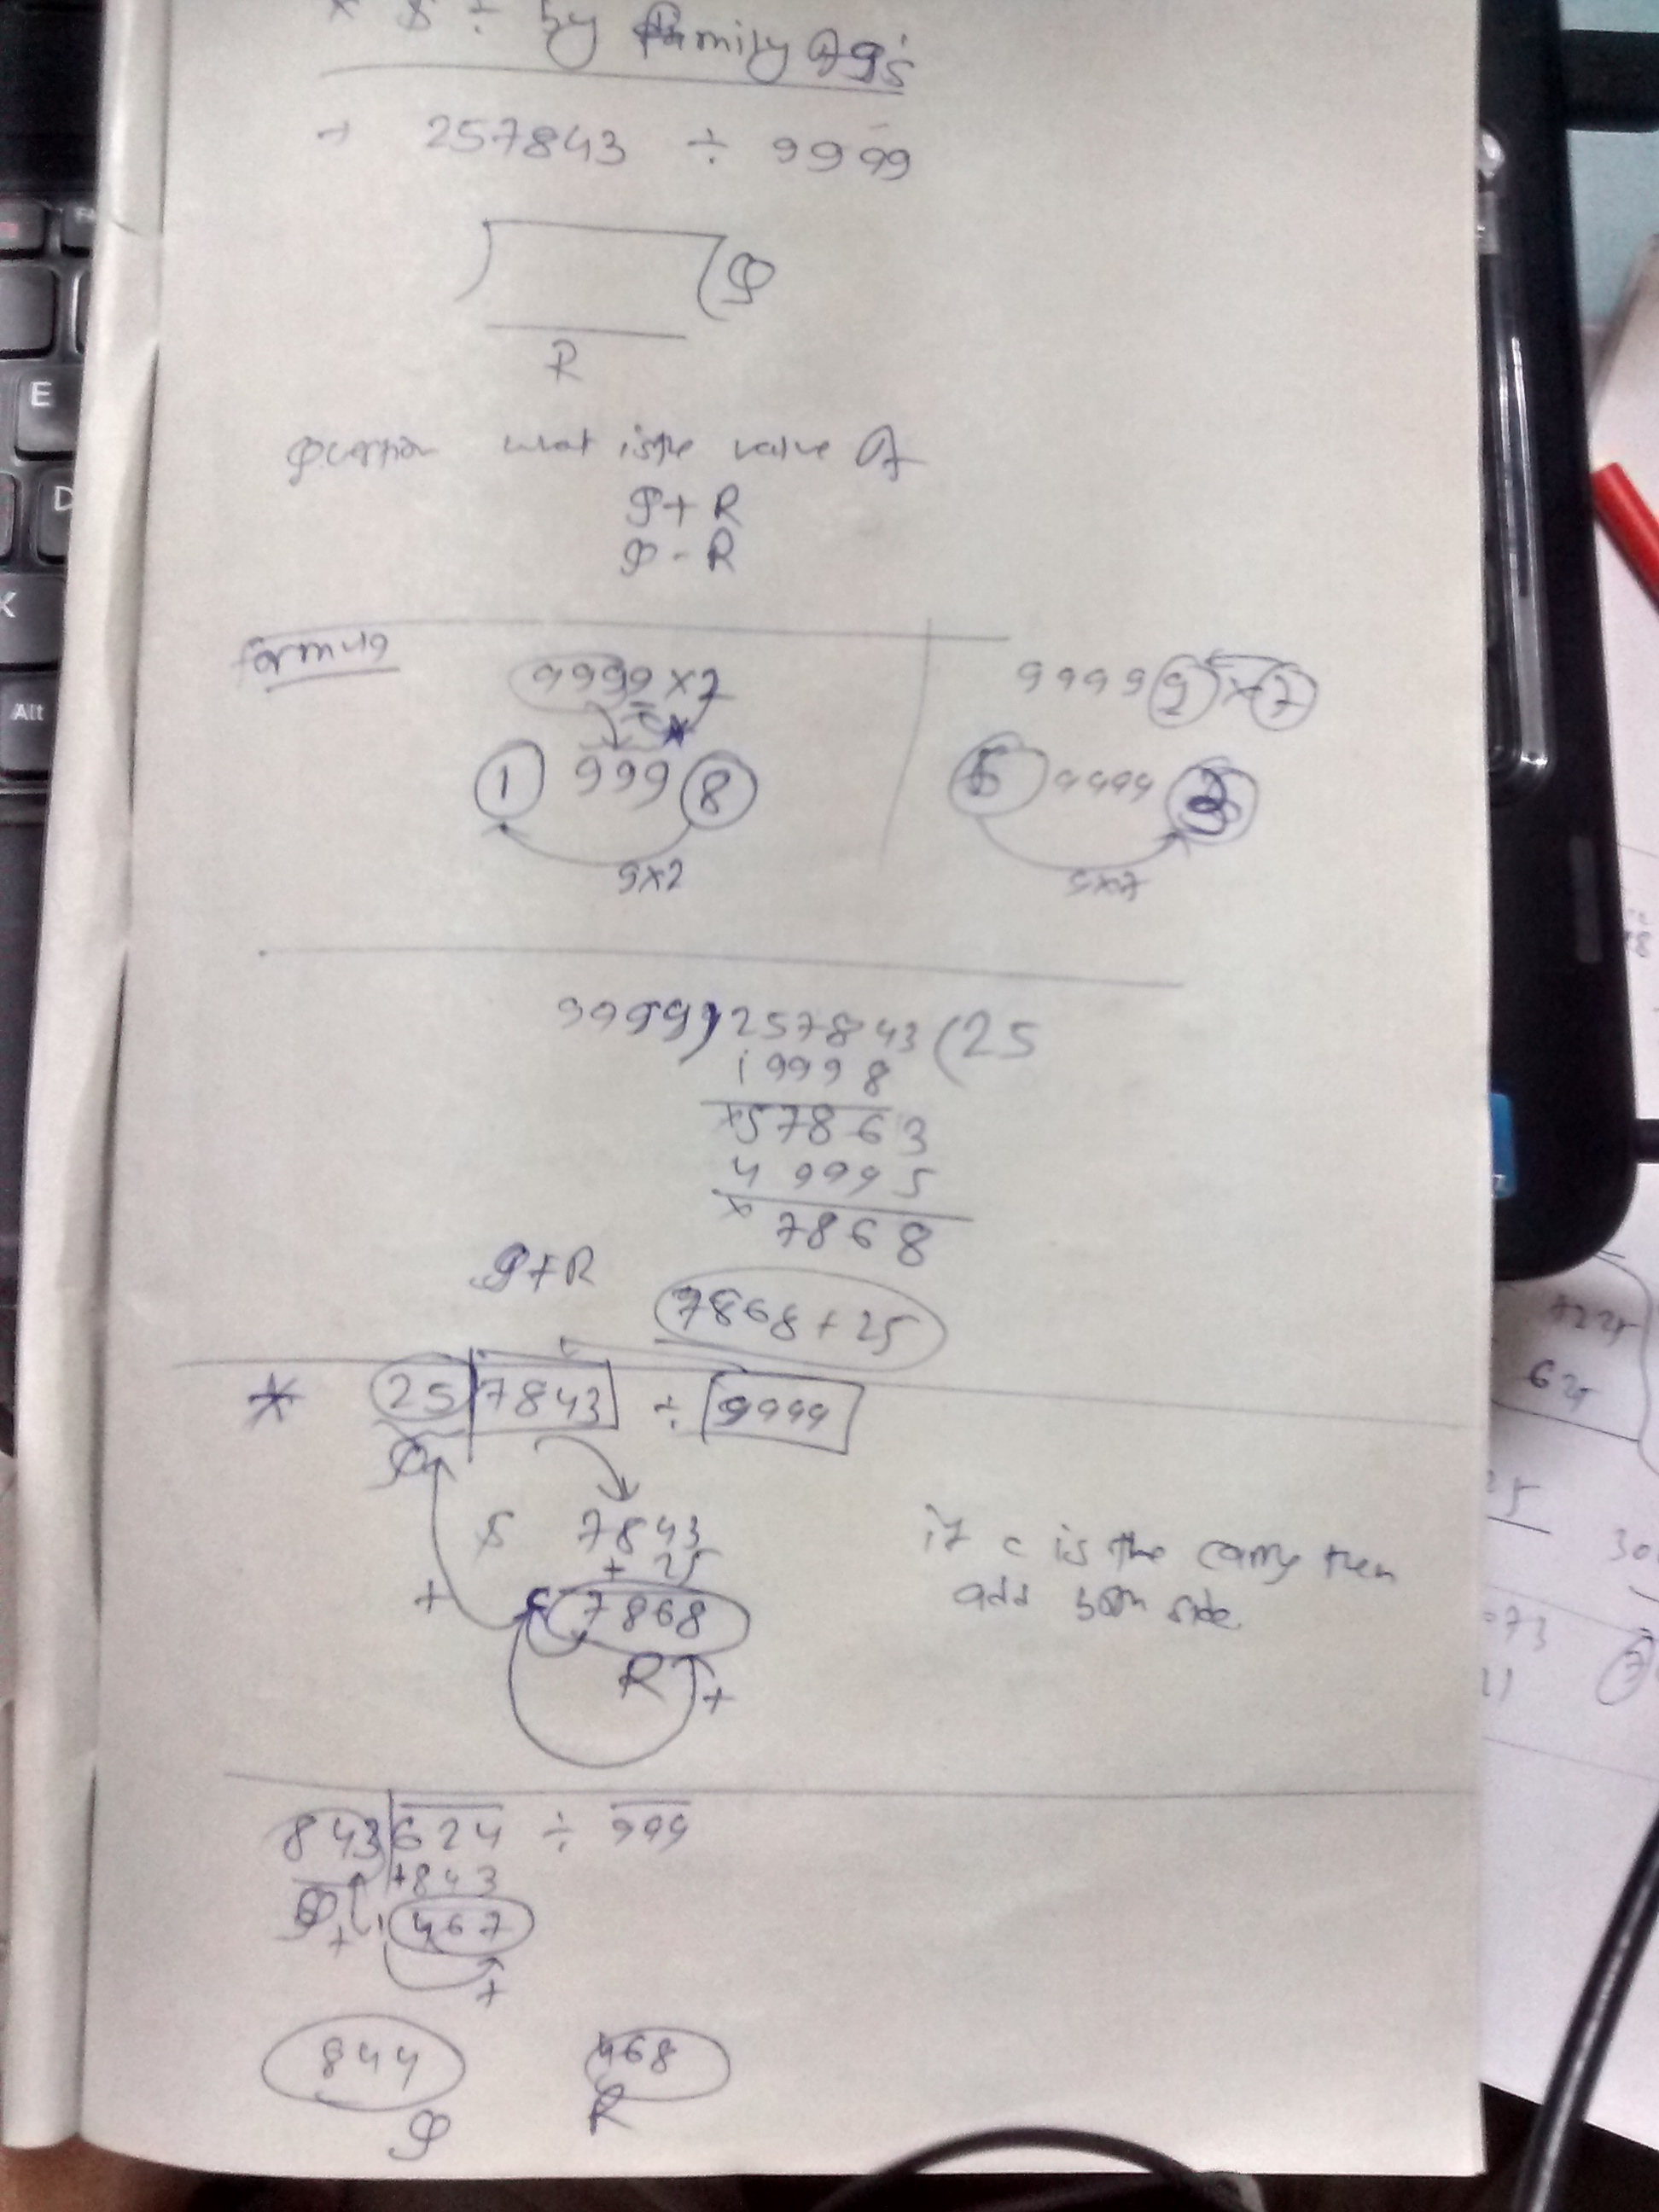 * & ÷ by Family of 9's
→ 257843 ÷ 9999
Q
R
Question what is the value of
Q + R
Q - R
formula
9999 x 2
1 999 8
9x2
99999 x 7
6 9999 3
9x7
9999)257843(25
19998
x57863
49995
x 7868
Q+R
7868 + 25
* 25|7843 ÷ 9999
Q
& 7843
+ 25
+ c 7868
R +
if c is the carry then
add both side
843|624 ÷ 999
+843
Q + 1 467
+
844 468
Q R
E
D
X
Alt